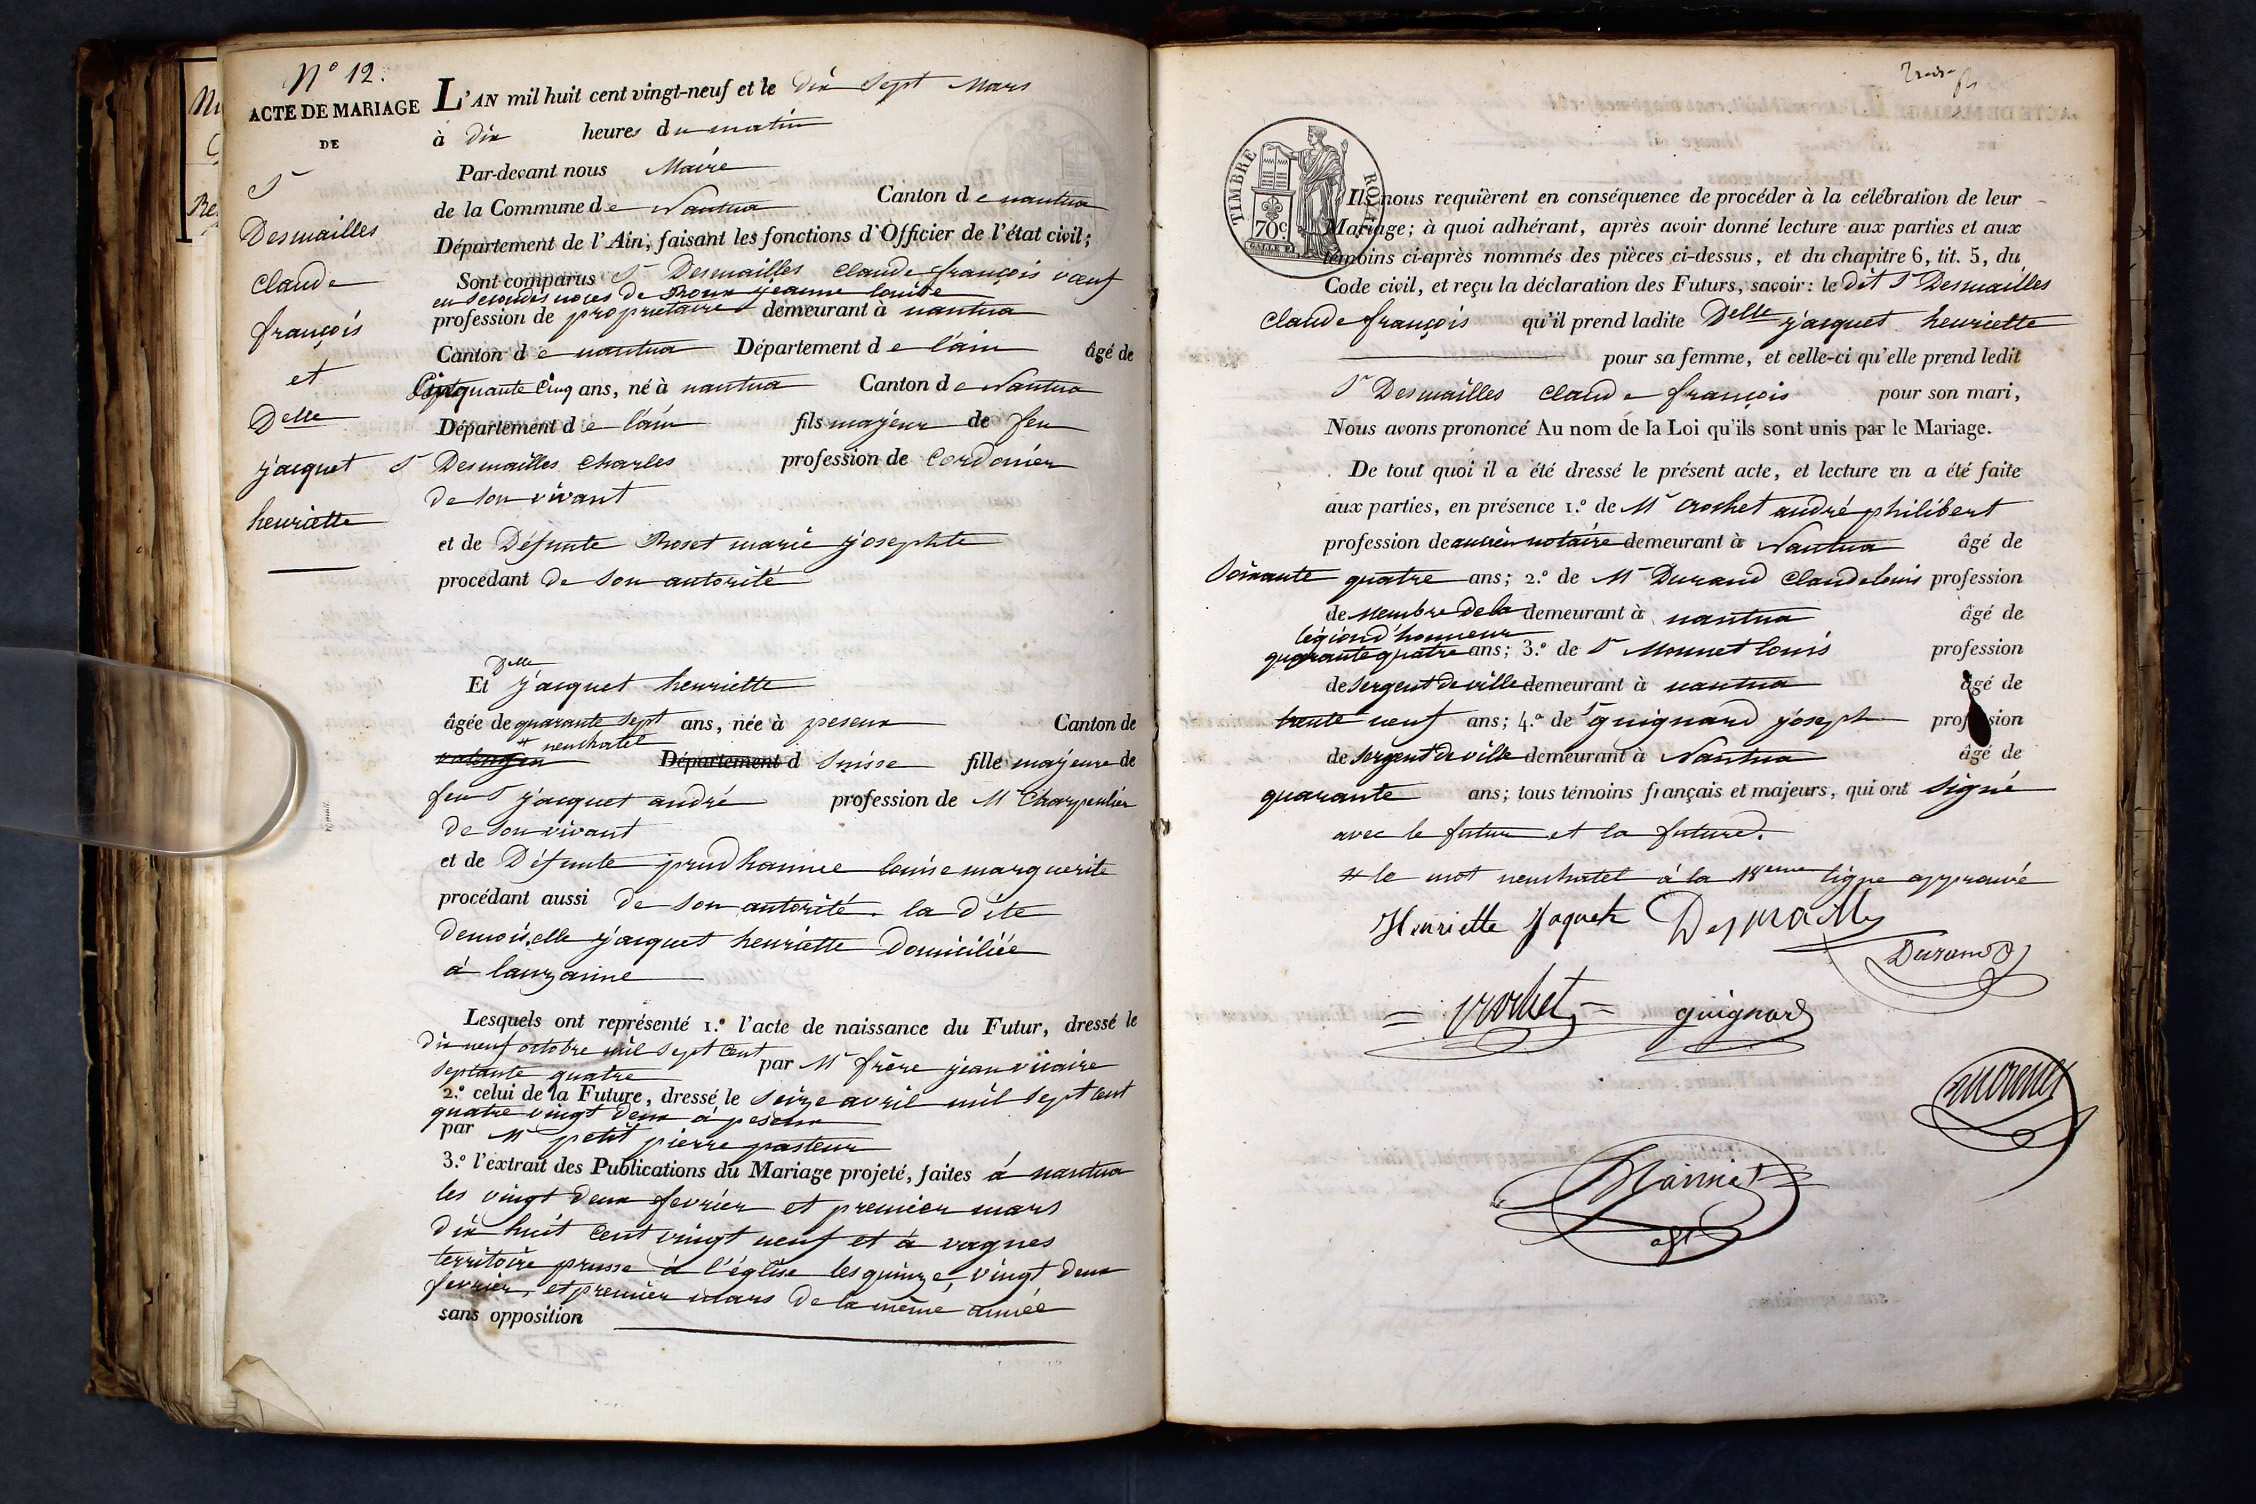 N° 12.
ACTE DE MARIAGE
DE
Sr
Desmailles
claude
françois
et
Delle
jacquet
henriette
L'AN mil huit cent vingt-neuf et le dix sept Mars
à dix heures du matin
Par-devant nous Maire
de la Commune de Nantua Canton de nantua
Département de l'Ain, faisant les fonctions d'Officier de l'état civil;
Sont comparus Sr Desmailles claude françois vœuf
en secondes noces de Roux jeanne louise
profession de propriétaire demeurant à nantua
Canton de nantua Département de l'ain âgé de
Cinquante Cinq ans, né à nantua Canton de Nantua
Département de l'ain fils majeur de feu
Sr Desmailles Charles profession de Cordonier
de son vivant
et de Défunte Roset marie josephte
procédant de son autorité
Delle
Et jacquet henriette
âgée de quarante sept ans, née à peseux Canton de
* neuchatel
Département d Suisse fille majeure de
feu Sr jacquet andré profession de Mr Charpentier
de son vivant
et de Défunte prudhomme louise marguerite
procédant aussi de son autorité. la dite
demoiselle jacquet henriette Domiciliée
à lauzanne
Lesquels ont représenté 1.° l'acte de naissance du Futur, dressé le
dix neuf octobre mil sept cent
septante quatre par Mr frère jean vicaire
2.° celui de la Future, dressé le seize avril mil sept cent
quatre vingt deux à peseux
par Mr petit pierre pasteur
3.° l'extrait des Publications du Mariage projeté, faites à nantua
les vingt deux fevrier et premier mars
dix huit cent vingt neuf et à vagnes
territoire prusse à l'église les quinze, vingt deux
fevrier, et premier mars de la même année
sans opposition
TIMBRE ROYAL
70c
Ils nous requièrent en conséquence de procéder à la célébration de leur
Mariage; à quoi adhérant, après avoir donné lecture aux parties et aux
témoins ci-après nommés des pièces ci-dessus, et du chapitre 6, tit. 5, du
Code civil, et reçu la déclaration des Futurs, savoir: le dit Sr Desmailles
claude françois qu'il prend ladite Delle jacquet henriette
pour sa femme, et celle-ci qu'elle prend ledit
Sr Desmailles claude françois pour son mari,
Nous avons prononcé Au nom de la Loi qu'ils sont unis par le Mariage.
De tout quoi il a été dressé le présent acte, et lecture en a été faite
aux parties, en présence 1.° de Mr Crochet andré philibert
profession de ancien notaire demeurant à Nantua âgé de
Soixante quatre ans; 2.° de Mr Durand claude louis profession
de Membre de la demeurant à nantua âgé de
légion d'honneur
quarante quatre ans; 3.° de Sr Monnet louis profession
de sergent de ville demeurant à nantua âgé de
trente neuf ans; 4.° de Sr guignard joseph profession
de sergent de ville demeurant à Nantua âgé de
quarante ans; tous témoins français et majeurs, qui ont signé
avec le futur et la future.
* le mot neuchatel à la 18eme ligne approuvé
Henriette Jaquet Desmailles
Durand
Crochet guignard
monnet